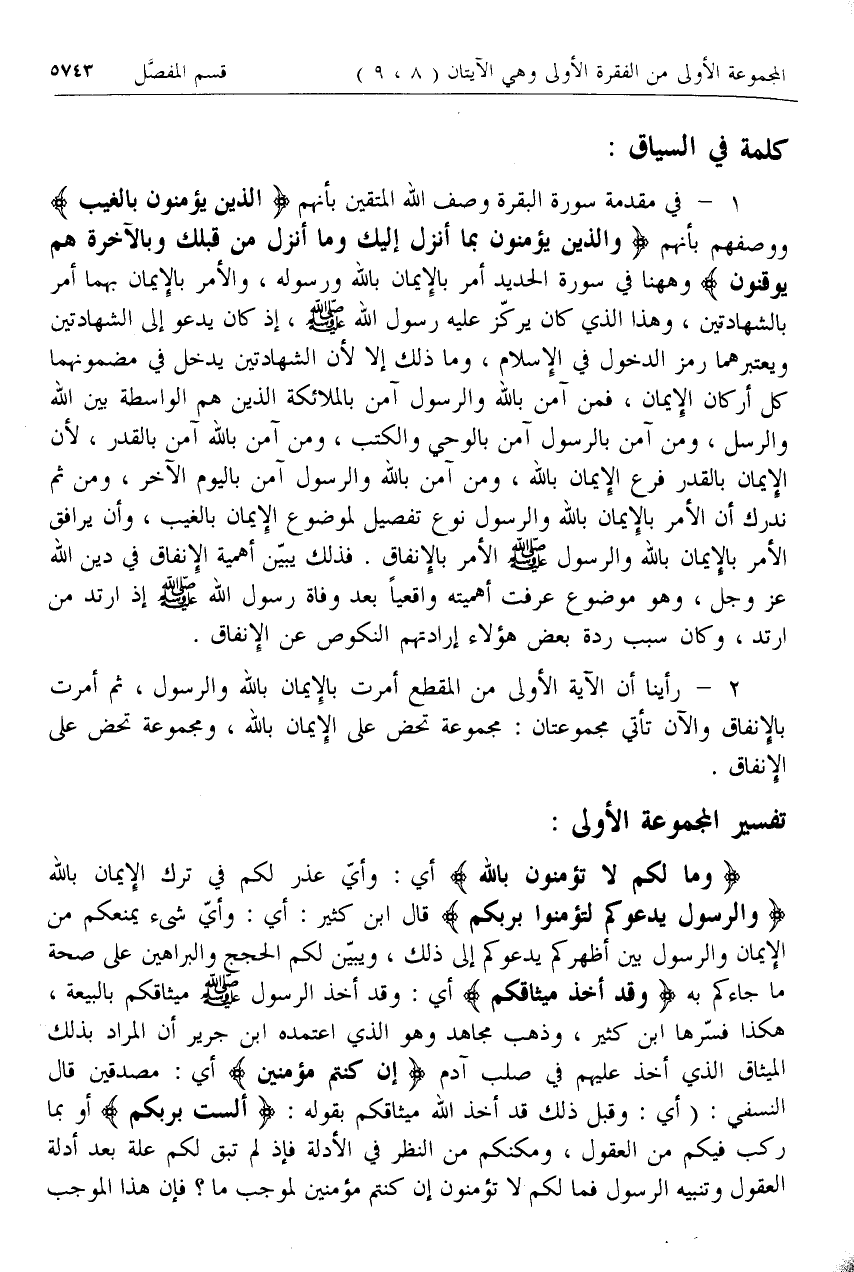 المجموعة الأولى من الفقرة الأولى وهي الآيتان ( ٨ ، ٩ ) قسم المفصَّل ٥٧٤٣
كلمة في السياق :
١ – في مقدمة سورة البقرة وصف الله المتقين بأنهم ﴿ الذين يؤمنون بالغيب ﴾
ووصفهم بأنهم ﴿ والذين يؤمنون بما أنزل إليك وما أنزل من قبلك وبالآخرة هم
يوقنون ﴾ وههنا في سورة الحديد أمر بالإيمان بالله ورسوله ، والأمر بالإيمان بهما أمر
بالشهادتين ، وهذا الذي كان يركّز عليه رسول الله ﷺ ، إذ كان يدعو إلى الشهادتين
ويعتبرهما رمز الدخول في الإسلام ، وما ذلك إلا لأن الشهادتين يدخل في مضمونهما
كل أركان الإيمان ، فمن آمن بالله والرسول آمن بالملائكة الذين هم الواسطة بين الله
والرسل ، ومن آمن بالرسول آمن بالوحي والكتب ، ومن آمن بالله آمن بالقدر ، لأن
الإيمان بالقدر فرع الإيمان بالله ، ومن آمن بالله والرسول آمن باليوم الآخر ، ومن ثم
ندرك أن الأمر بالإيمان بالله والرسول نوع تفصيل لموضوع الإيمان بالغيب ، وأن يرافق
الأمر بالإيمان بالله والرسول ﷺ الأمر بالإنفاق . فذلك يبيّن أهمية الإنفاق في دين الله
عز وجل ، وهو موضوع عرفت أهميته واقعياً بعد وفاة رسول الله ﷺ إذ ارتد من
ارتد ، وكان سبب ردة بعض هؤلاء إرادتهم النكوص عن الإنفاق .
٢ – رأينا أن الآية الأولى من المقطع أمرت بالإيمان بالله والرسول ، ثم أمرت
بالإنفاق والآن تأتي مجموعتان : مجموعة تحض على الإيمان بالله ، ومجموعة تحض على
الإنفاق .
تفسير المجموعة الأولى :
﴿ وما لكم لا تؤمنون بالله ﴾ أي : وأيّ عذر لكم في ترك الإيمان بالله
﴿ والرسول يدعوكم لتؤمنوا بربكم ﴾ قال ابن كثير : أي : وأيّ شىء يمنعكم من
الإيمان والرسول بين أظهركم يدعوكم إلى ذلك ، ويبيّن لكم الحجج والبراهين على صحة
ما جاءكم به ﴿ وقد أخذ ميثاقكم ﴾ أي : وقد أخذ الرسول ﷺ ميثاقكم بالبيعة ،
هكذا فسّرها ابن كثير ، وذهب مجاهد وهو الذي اعتمده ابن جرير أن المراد بذلك
الميثاق الذي أخذ عليهم في صلب آدم ﴿ إن كنتم مؤمنين ﴾ أي : مصدقين قال
النسفي : ( أي : وقبل ذلك قد أخذ الله ميثاقكم بقوله : ﴿ ألست بربكم ﴾ أو بما
ركب فيكم من العقول ، ومكنكم من النظر في الأدلة فإذ لم تبق لكم علة بعد أدلة
العقول وتنبيه الرسول فما لكم لا تؤمنون إن كنتم مؤمنين لموجب ما ؟ فإن هذا الموجب